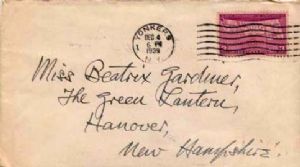 YONKERS
DEC 4
6 PM
1939
N.Y.
Miss Beatrix Gardiner,
The Green Lantern,
Hanover,
New Hampshire.